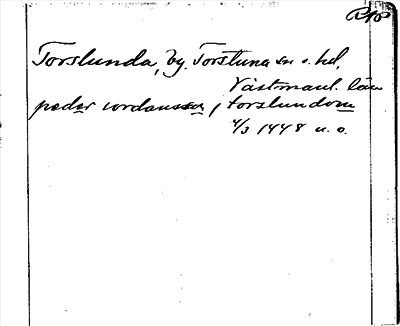 Torslunda, by. Torstuna sn o. hd,
Västmanl. län
peder iordansson, torslundom
4/3 1448 u. o.